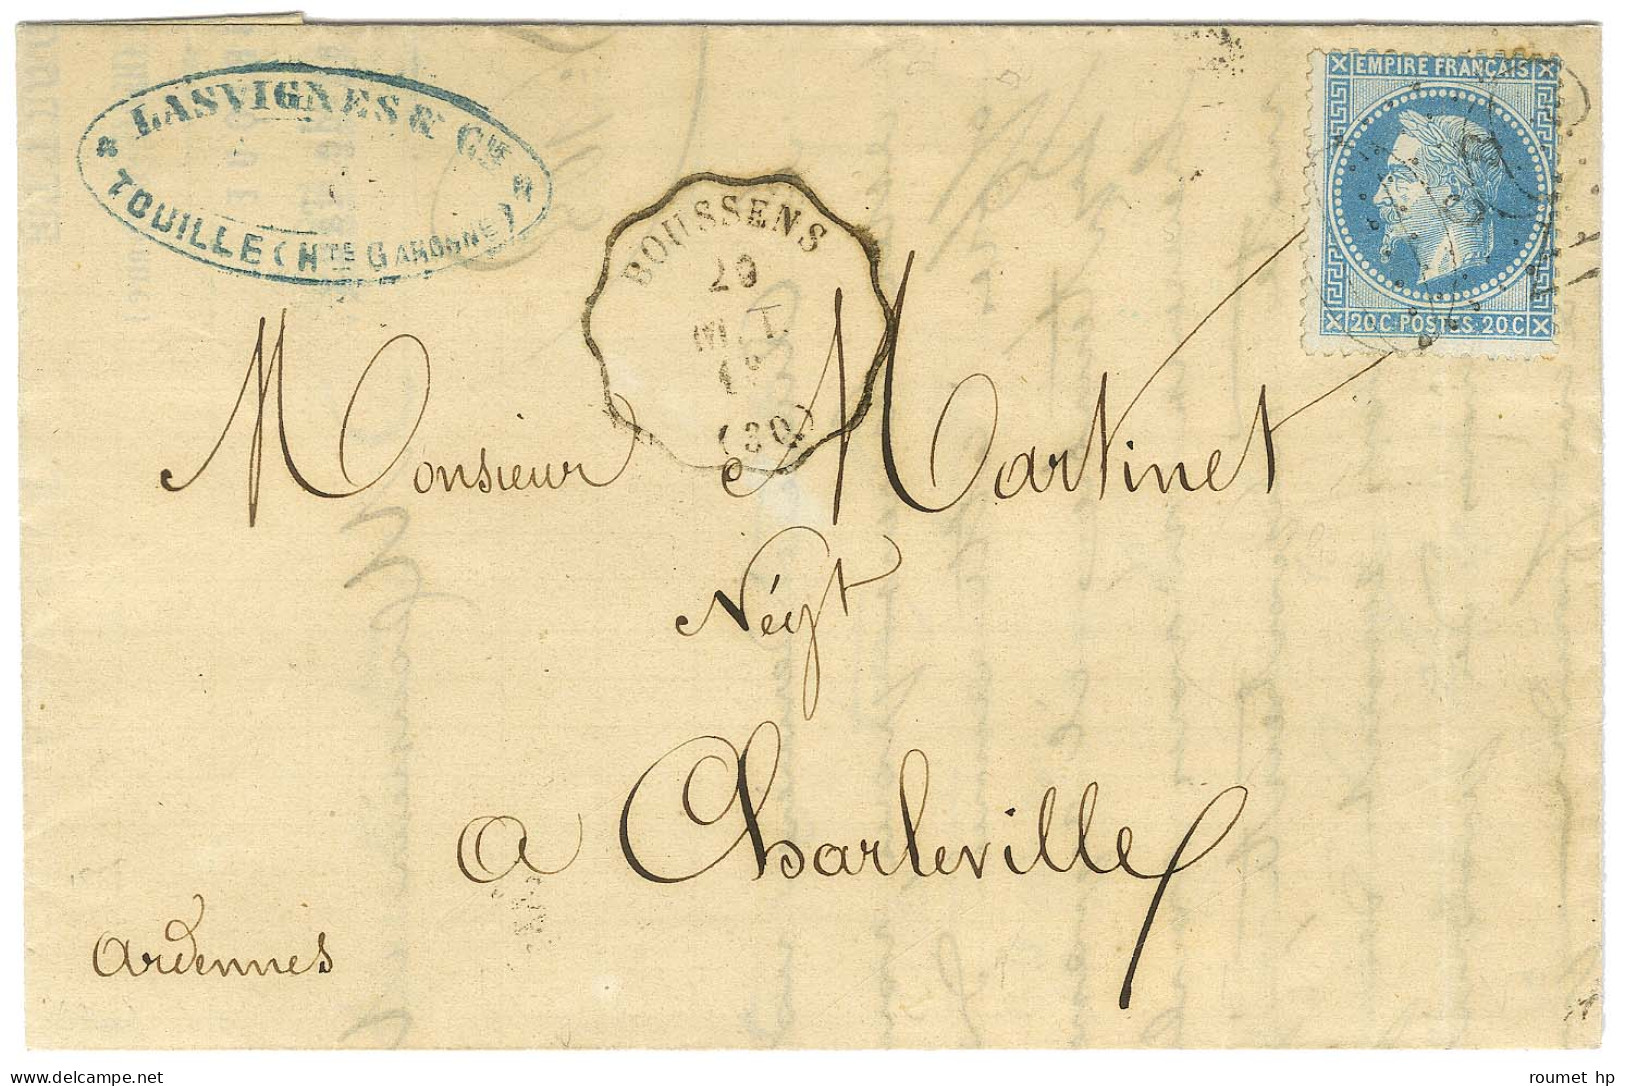 LASVIGNES & Cie
TOUILLE (Hte GARONNE)
BOUSSENS
20
(30)
EMPIRE FRANÇAIS
20 C. POSTES. 20 C
Monsieur Martinet
Négt
a Charleville
Ardennes
roumet hp